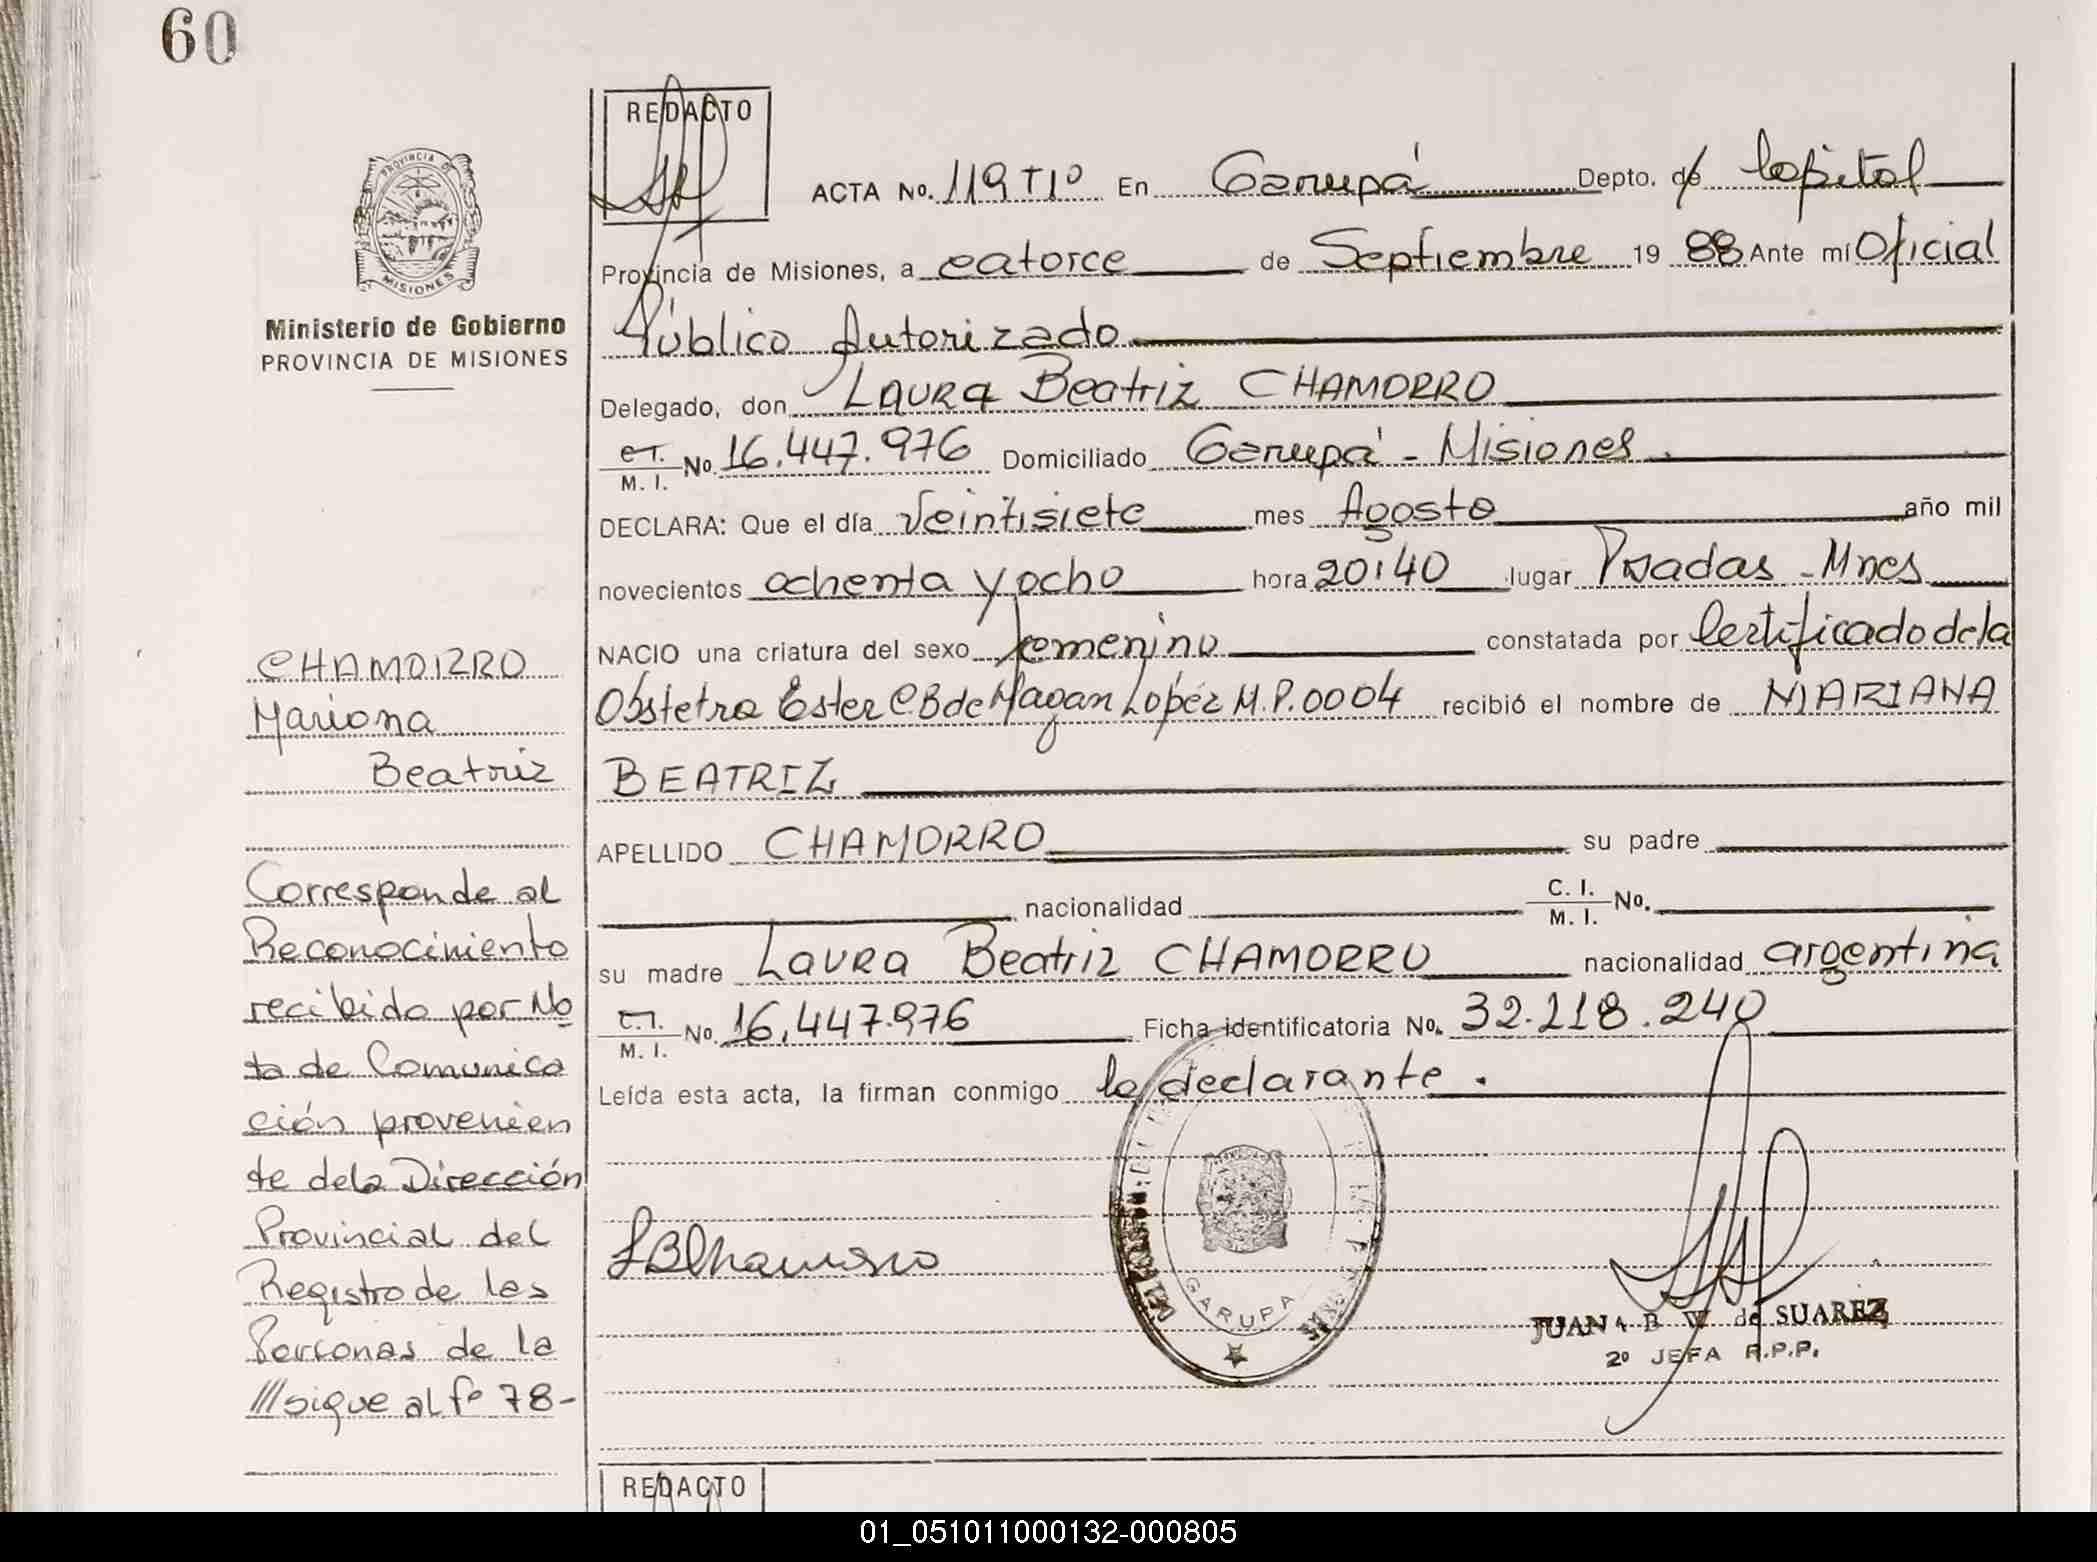 60
REDACTO
ACTA No. 119 T1º En Garupá Depto. de Capital
Provincia de Misiones, a catorce de Septiembre 19 88 Ante mí Oficial
Público Autorizado
Delegado, don LAURA Beatriz CHAMORRO
C.I. M. I. No. 16.447.976 Domiciliado Garupá - Misiones
DECLARA: Que el día Veintisiete mes Agosto año mil
novecientos ochenta y ocho hora 20:40 lugar Posadas - Mnes
NACIO una criatura del sexo femenino constatada por Certificado de la
Obstetra Ester C B de Magan Lopéz M.P. 0004 recibió el nombre de MARIANA
BEATRIZ
APELLIDO CHAMORRO su padre
nacionalidad C. I. M. I. No.
su madre LAURA Beatriz CHAMORRO nacionalidad argentina
C.I. M. I. No. 16.447.976 Ficha identificatoria No. 32.218.240
Leída esta acta, la firman conmigo la declarante.
LBChamorro
GARUPA
JUANA B W de SUAREZ
2º JEFA R.P.P.
REDACTO
PROVINCIA DE
MISIONES
Ministerio de Gobierno
PROVINCIA DE MISIONES
CHAMORRO
Mariana
Beatriz
Corresponde al
Reconocimiento
recibido por No
ta de Comunica
ción provenien
te de la Dirección
Provincial del
Registro de las
Personas de la
///sigue al fº 78-
01_051011000132-000805